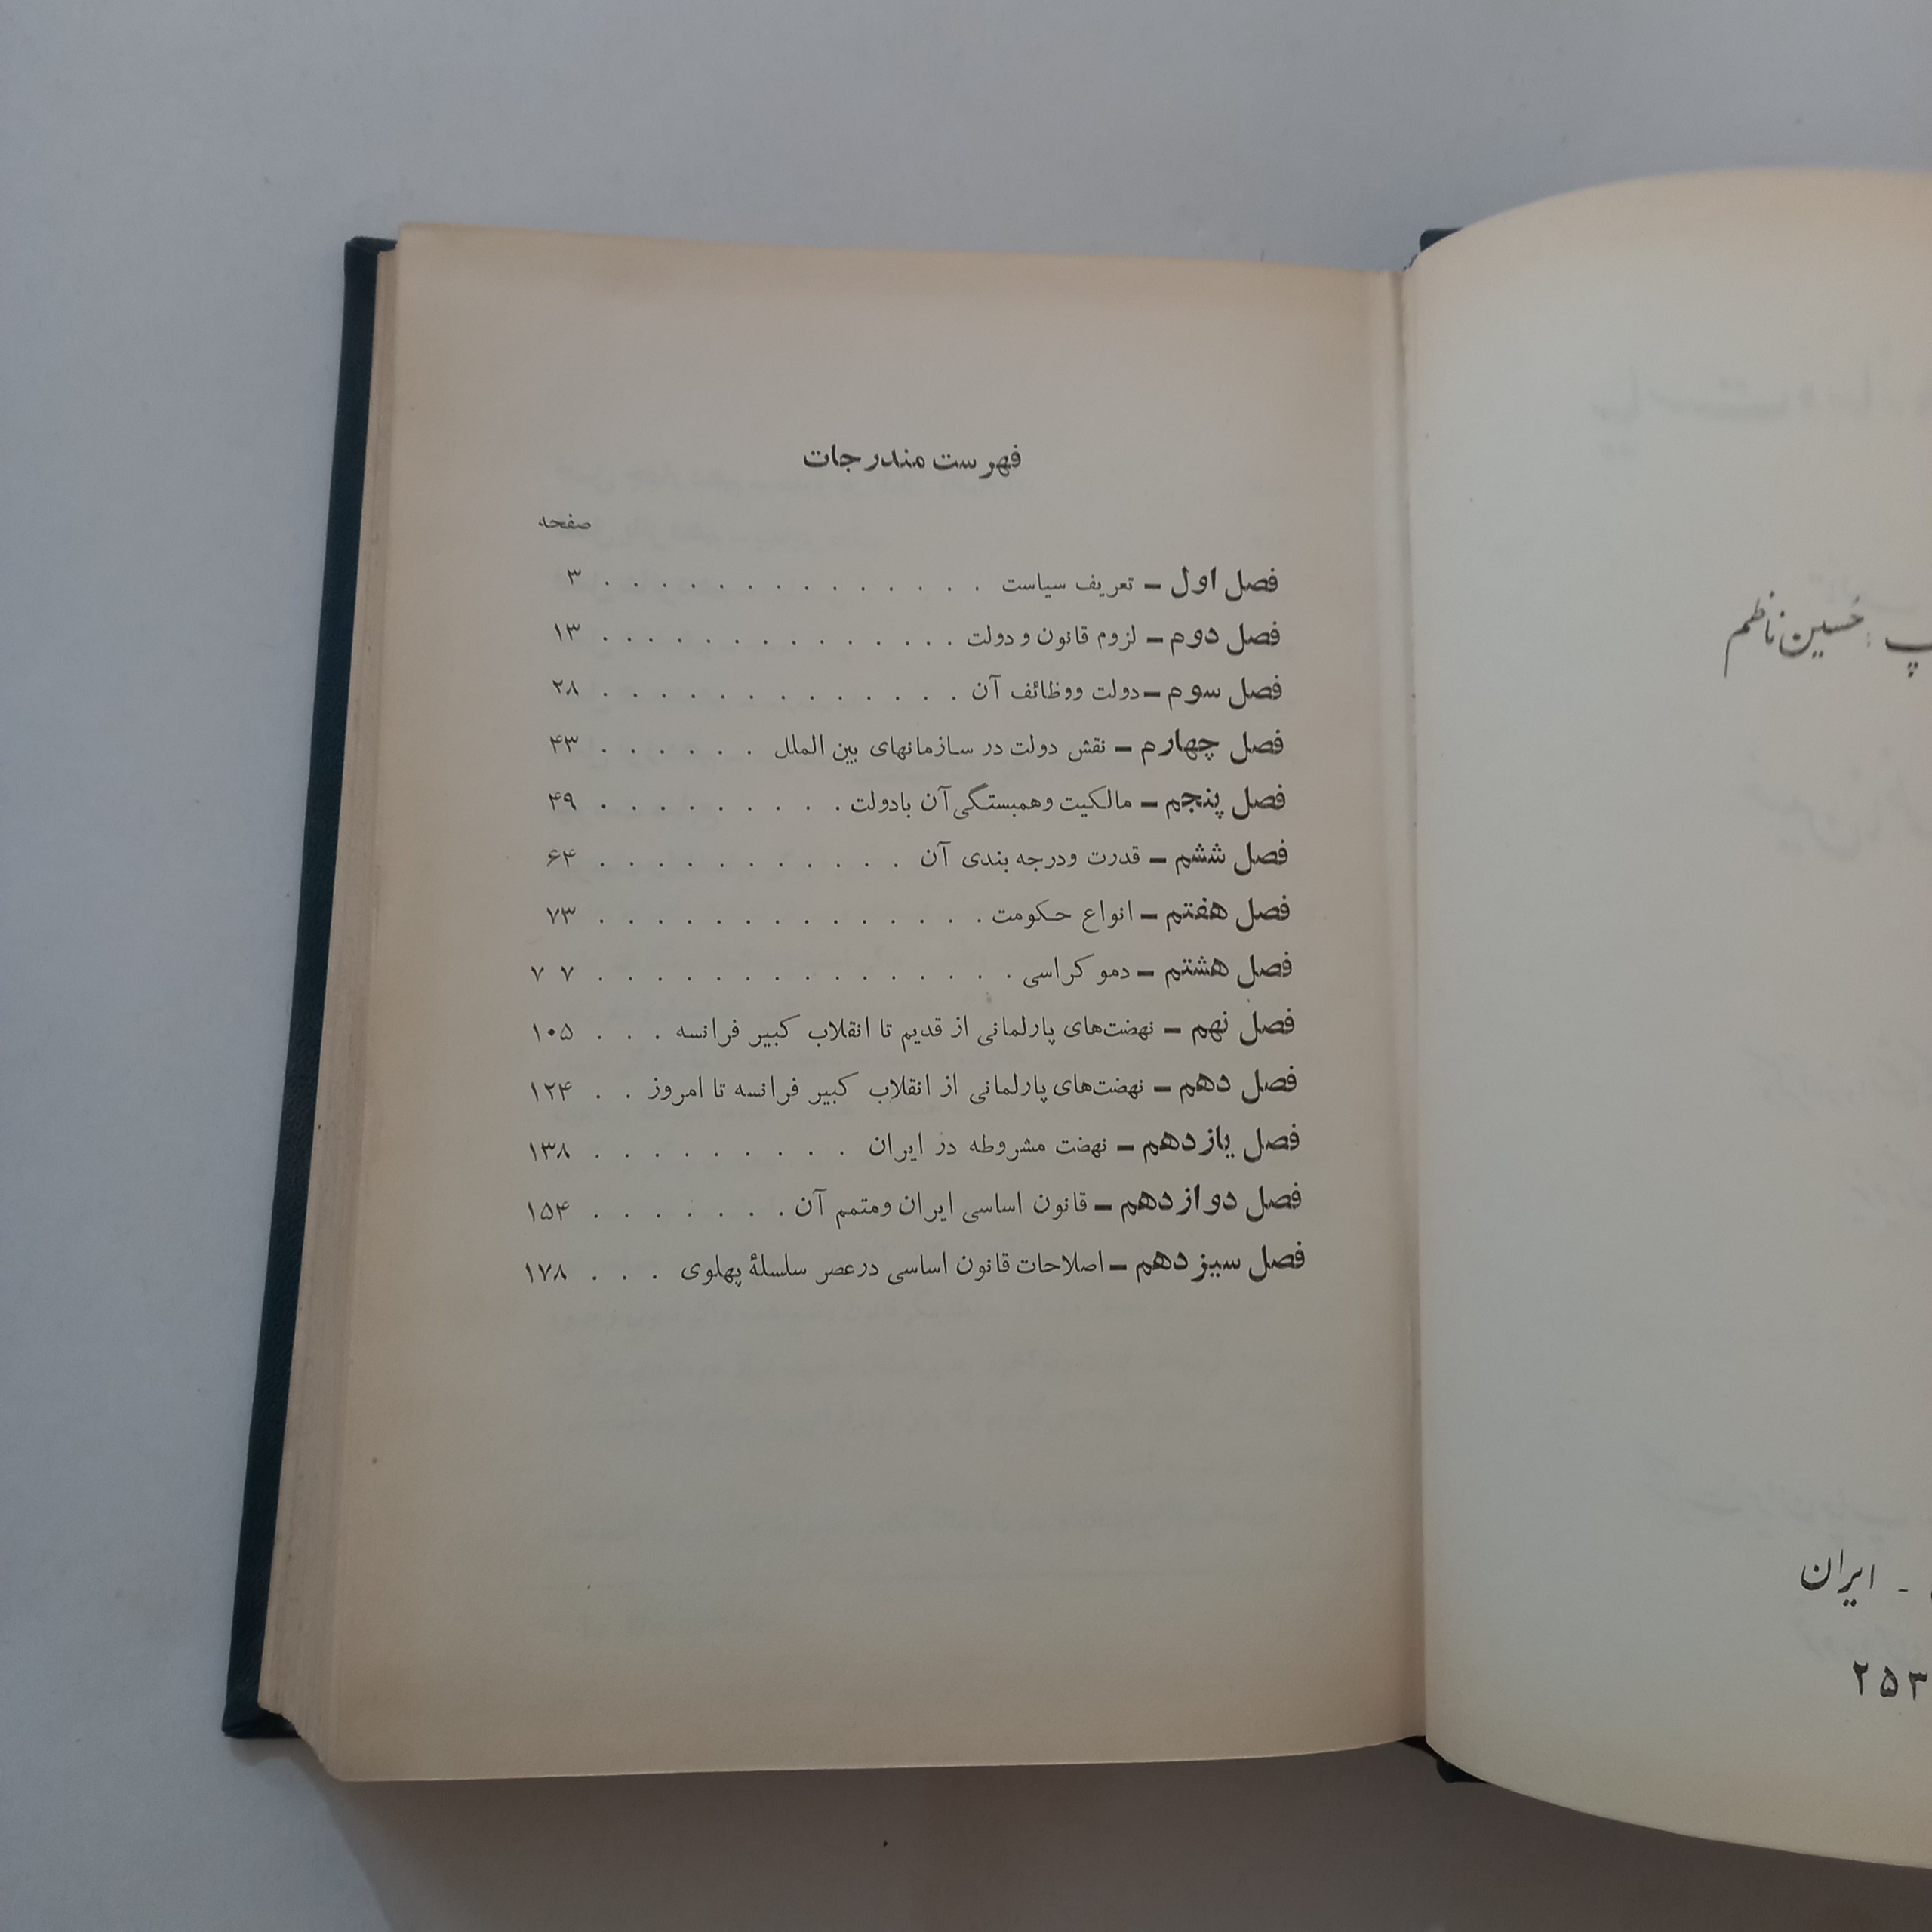 فهرست مندرجات
صفحه
فصل اول – تعریف سیاست . . . . . . . . . . . . . . ۳
فصل دوم – لزوم قانون و دولت . . . . . . . . . . . . . ۱۳
فصل سوم – دولت ووظائف آن . . . . . . . . . . . . . ۲۸
فصل چهارم – نقش دولت در سازمانهای بین الملل . . . . . . ۴۳
فصل پنجم – مالکیت وهمبستگی آن بادولت . . . . . . . . . ۴۹
فصل ششم – قدرت ودرجه بندی آن . . . . . . . . . . . ۶۴
فصل هفتم – انواع حکومت . . . . . . . . . . . . . . ۷۳
فصل هشتم – دموکراسی . . . . . . . . . . . . . . . ۷ ۷
فصل نهم – نهضت‌های پارلمانی از قدیم تا انقلاب کبیر فرانسه . . . ۱۰۵
فصل دهم – نهضت‌های پارلمانی از انقلاب کبیر فرانسه تا امروز . . ۱۲۴
فصل یازدهم – نهضت مشروطه در ایران . . . . . . . . . ۱۳۸
فصل دوازدهم – قانون اساسی ایران ومتمم آن . . . . . . . ۱۵۴
فصل سیزدهم – اصلاحات قانون اساسی درعصر سلسلهٔ پهلوی . . . ۱۷۸
: حسین ناظم
- ایران
۲۵۳